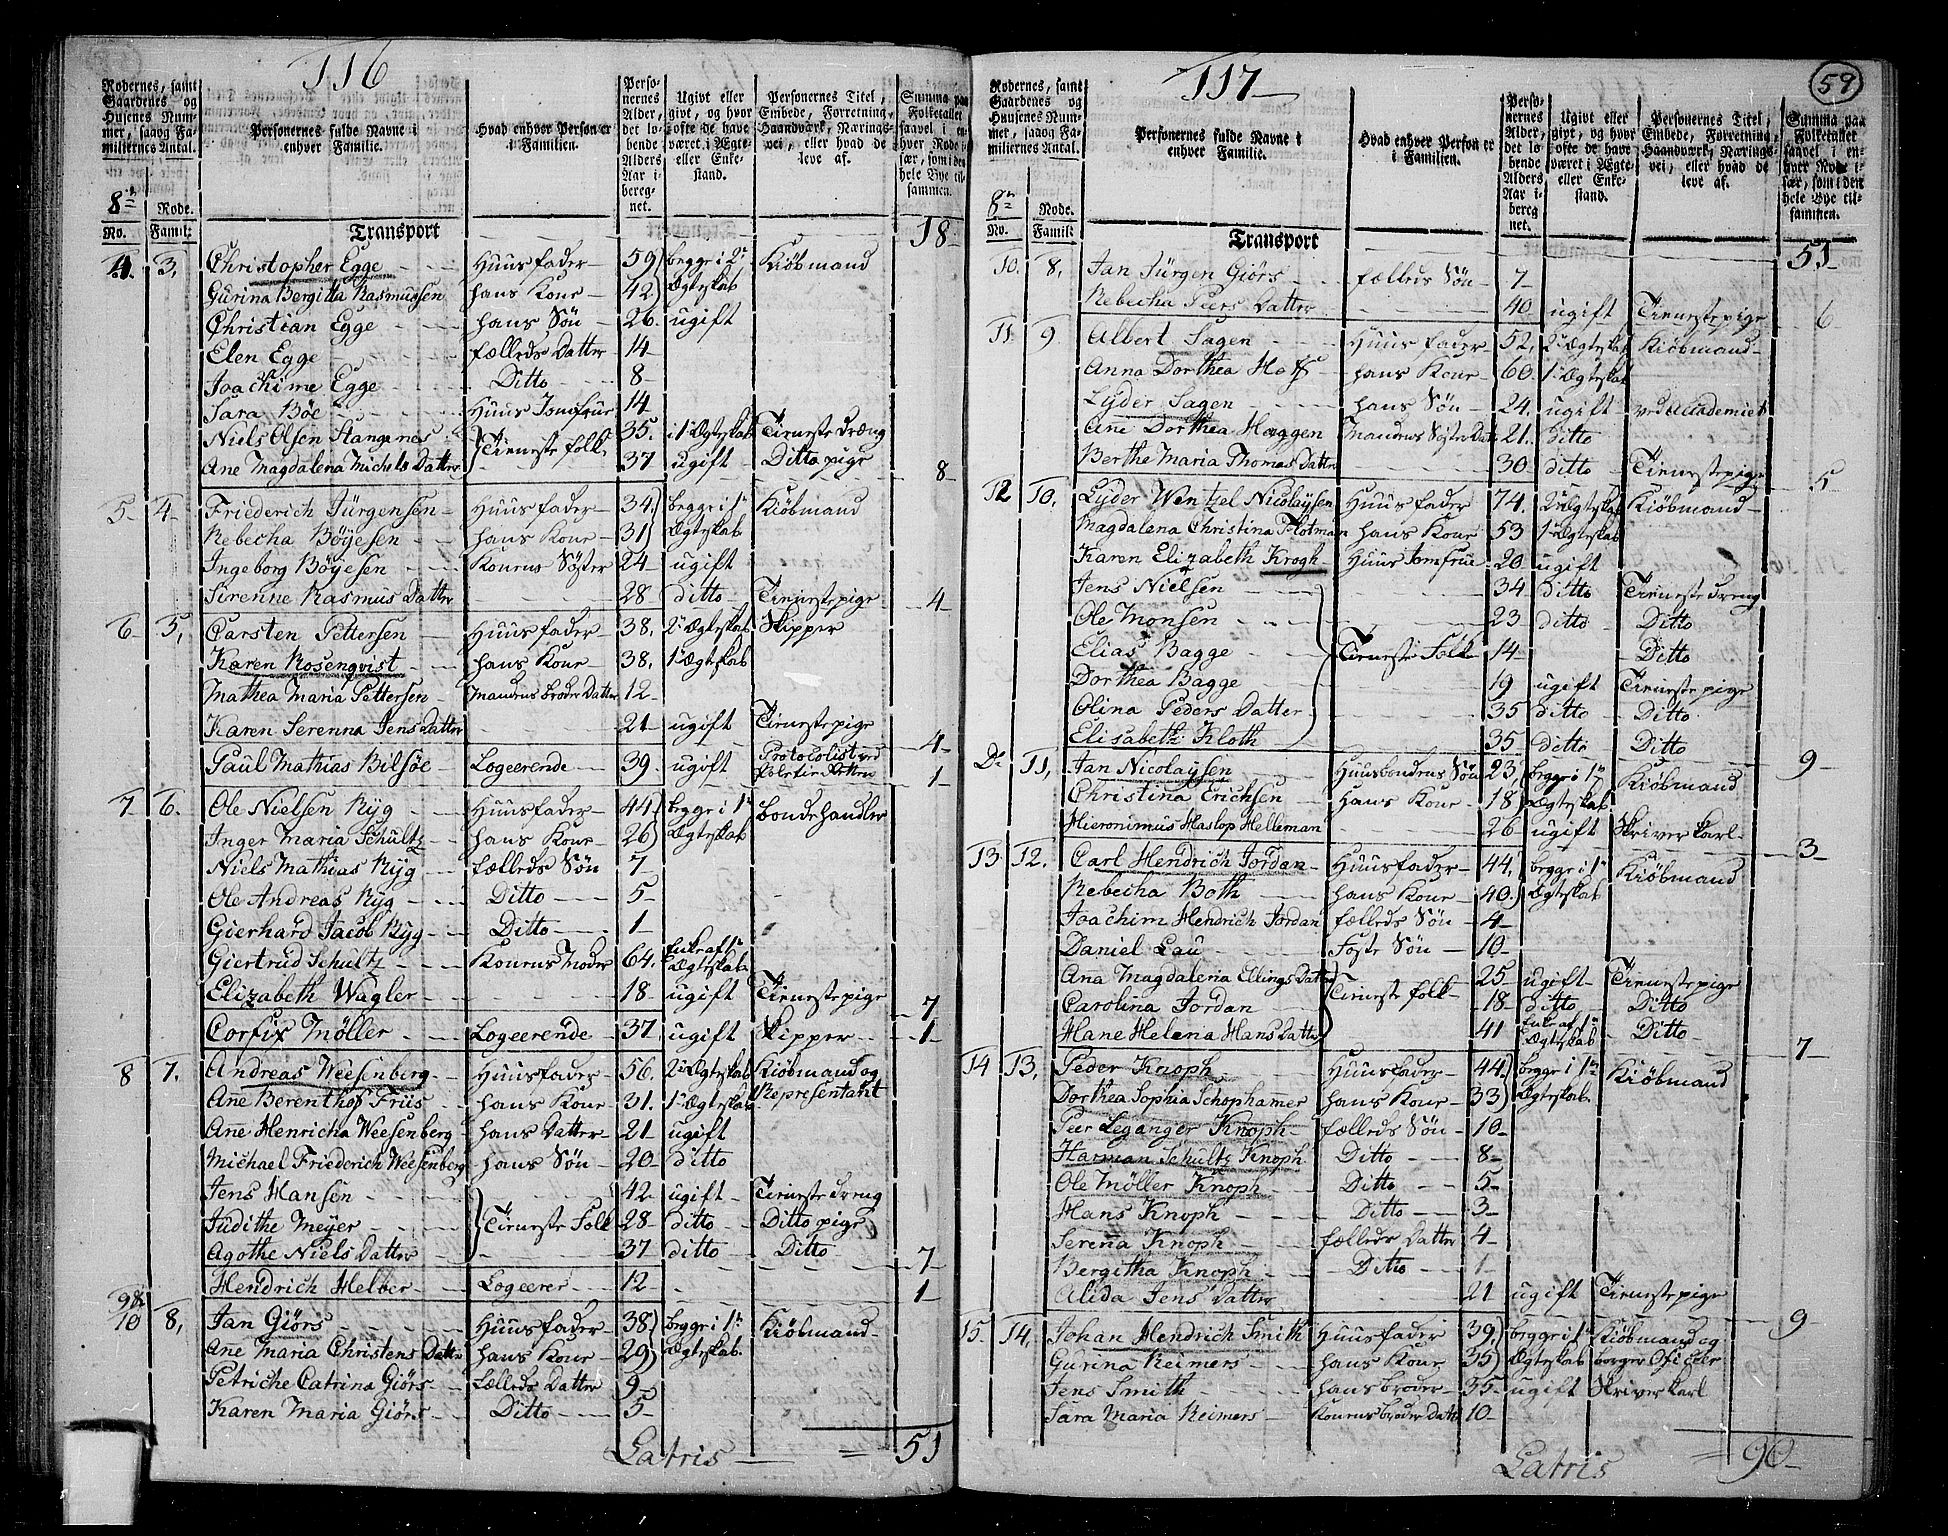 116
Rodernes, samt Gaardenes og Husenes Nummer, saavog Familiernes Antal.
Personernes fulde Navne i enhver Familie.
Hvad enhver Person er i Familien.
Personernes Alder, det lobende Alders Aar iberegnet.
Ugivt eller givt, og hvor ofte de have været i Ægte- eller Enkestand.
Personernes Titel, Embede, Forretning, Haandværk, Næringsvei, eller hvad de leve af.
Summa paa Folketallet saavel i enhver Rode især, som i den hele Bye tilsammen.
8de Rode.
No. Famil:
Transport 18
4. 3. Christopher Egge Huusfader 59 begge i 2t Kiöbmand
Gurina Bergitta Rasmussen hans Kone 42 Ægteskab
Christian Egge hans Sön 26 ugift
Elen Egge fælleds Datter 14
Joachime Egge Ditto 8
Sara Böe Huus Jomfrue 14
Niels Olsen Stangenes Tieneste folk 35. i 1t Ægteskab Tieneste dræng
Ane Magdalena Michels Datter 37 ugift Ditto pige 8
5 4 Friederich Jürgensen Huusfader 34 begge i 1t Kiöbmand
Rebecha Böyesen hans Kone 31 Ægteskab
Ingeborg Böyesen Konens Söster 24 ugift
Sirenne Rasmus Datter 28 ditto Tienestepige 4
6 5, Carsten Pettersen Huusfader 38. 2t Ægteskab Skipper
Karen Rosenqvist hans Kone 38. 1t Ægteskab
Mathea Maria Pettersen Mandens broder Datter 12
Karen Serenna Jens Datter 21 ugift Tienestepige 4
Paul Mathias Bilsöe Logeerende 39. ugift Protocolist ved 1
7 6. Ole Nielsen Ryg Huusfader 44 begge i 1t bonde handler
Inger Maria Schultz hans Kone 26 Ægteskab
Niels Mathias Ryg fælleds Sön 7
Ole Andreas Ryg Ditto 5
Gierhard Jacob Ryg Ditto 1
Giertrud Schultz Konens Moder 64. Enke af 1t Ægteskab
Elizabeth Wagler 18 ugift Tienestepige 7
Corfix Möller Logeerende 37 ugift Skipper 1
8 7. Andreas Weesenberg Huusfader 56. 2t Ægteskab Kiöbmand og
Ane Berenthof Friis hans Kone 31. 1t Ægteskab Repræsentant
Ane Henricha Weesenberg hans Datter 21 ugift
Michael Friederich Weesenberg hans Sön 20 ditto
Jens Hansen Tieneste Folk 42 ugift Tieneste dreng
Judithe Meyer 28 ditto Ditto pige
Agothe Niels Datter 37 ditto Ditto 7
Hendrich Helber Logeerer 12 1
9 & 10 8, Jan Giörs Huusfader 38 begge i 1t Kiöbmand
Ane Maria Christens Datter hans Kone 29 Ægteskab
Petriche Catrina Giörs fælleds Datter 9
Karen Maria Giörs Ditto 5
Latris 51
59
117
Rodernes, samt Gaardenes og Husenes Nummer, saavog Familiernes Antal.
Personernes fulde Navne i enhver Familie.
Hvad enhver Person er i Familien.
Personernes Alder, det lobende Alders Aar iberegnet.
Ugivt eller givt, og hvor ofte de have været i Ægte- eller Enkestand.
Personernes Titel, Embede, Forretning, Haandværk, Næringsvei, eller hvad de leve af.
Summa paa Folketallet saavel i enhver Rode især, som i den hele Bye tilsammen.
8de Rode.
No. Famil:
Transport 51
10. 8, Jan Jürgen Giörs fælleds Sön 7
Rebecha Peers Datter 40 ugift Tienestepige 6
11 9 Albert Sagen Huusfader 52, 2t Ægteskab Kiöbmand
Anna Dorthea Hoff hans Kone 60 1t Ægteskab
Lyder Sagen hans Sön 24. ugift ved Academiet
Ane Dorthea Haggen Mandens Söster Datter 21. ditto
Berthe Maria Thomas Datter 30 ditto Tienestepige 5
12 10, Lyder Wentzel Nicolaysen Huusfader 74. 2t Ægteskab Kiöbmand
Magdalena Christina Flotman hans Kone 53 1t Ægteskab
Karen Elizabeth Krogh Huus Jomfrue 20 ugift
Jens Nielsen 34 ditto Tieneste dreng
Ole Monsen 23 ditto Ditto
Elias Bagge Tieneste Folk 14 Ditto
Dorthea Bagge 19 ugift Tieneste pige
Olina Peders Datter 35 ditto Ditto
Elisabeth Kloth 35 ditto Ditto 9
Do 11, Jan Nicolaysen Huusbondens Sön 23 begge i 1t Kiöbmand
Christina Erichsen hans Kone 18 Ægteskab
Hieronimus Haslop Helleman 26 ugift Skriver karl 3
13 12. Carl Hendrich Jordan Huusfader 44, begge i 1t Kiöbmand
Rebecha Both hans Kone 40. Ægteskab
Joachim Hendrich Jordan fælleds Sön 4
Daniel Lau Foste Sön 10
Ana Magdalena Ellings Datter Tieneste folk 25 ugift Tienestepige
Carolina Jordan 18 ditto Ditto
Hane Helena Hans Datter 41 Enke af 1t Ægteskab Ditto 7
14 13, Peder Knoph Huusfader 44. begge i 1t Kiöbmand
Dorthea Sophia Schophamer hans Kone 33 Ægteskab
Peer Leganger Knoph fælleds Sön 10
Harman Schultz Knoph Ditto 8
Ole Möller Knoph Ditto 5
Hans Knoph Ditto 3
Serena Knoph fælleds Datter 4
Bergitha Knoph Ditto 1
Alida Jens Datter 21 ugift Tienestepige 9
15 14, Johan Hendrich Smith Huusfader 39, begge i 1t Kiöbmand og
Gurina Reimers hans Kone 35 Ægteskab borger Oficeer
Jens Smith hans broder 35 ugift Skriver karl
Sara Maria Reimers Konens broder Datter 10
Latris 90